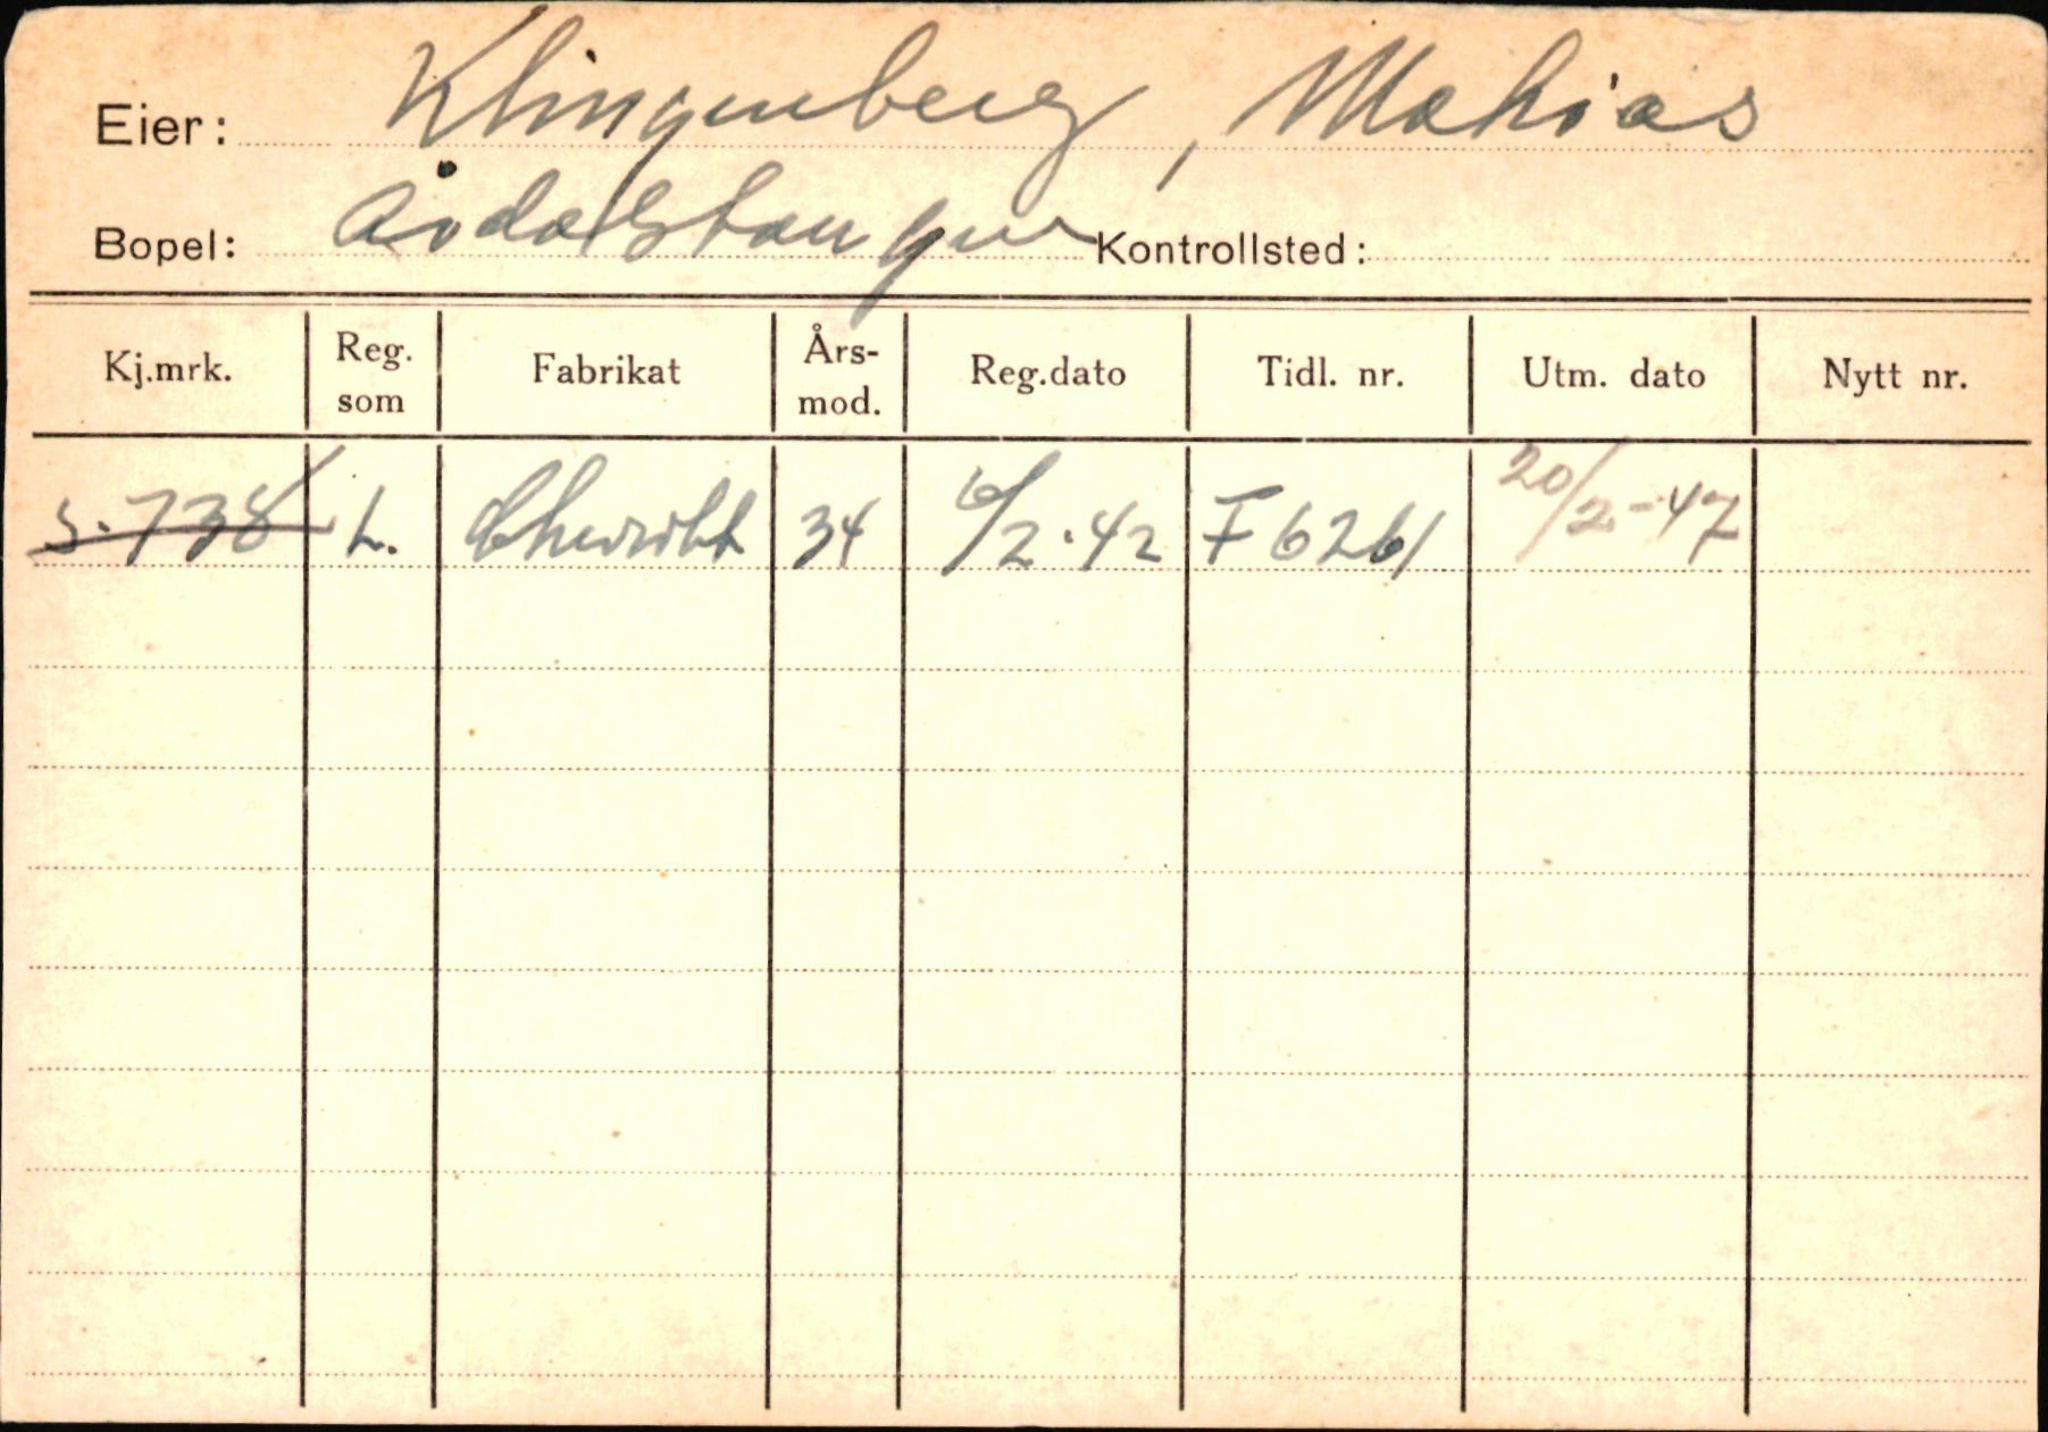 Eier: Klingenberg, Mathias
Bopel: Årdalstangen Kontrollsted:
Kj.mrk. Reg. som Fabrikat Års-mod. Reg.dato Tidl. nr. Utm. dato Nytt nr.
S-738 L. Chevrolet 34 6/2-42 F 6261 20/2-47